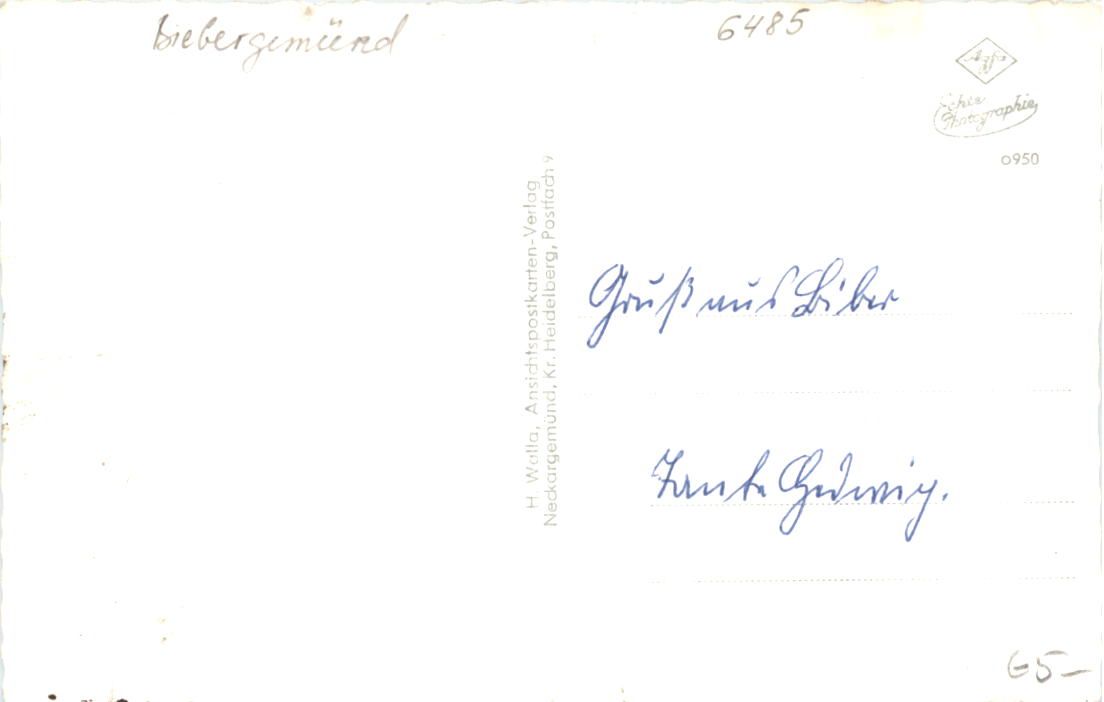 Biebergemünd
6485
Agfa
Echte
Photographie
o950
H. Walla, Ansichtspostkarten-Verlag
Neckargemünd, Kr. Heidelberg, Postfach 9
Gruß aus Biber
Tante Hedwig.
65-